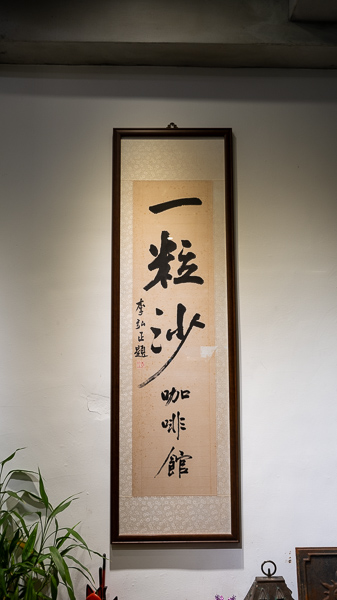 一粒沙咖啡館
李弘正題